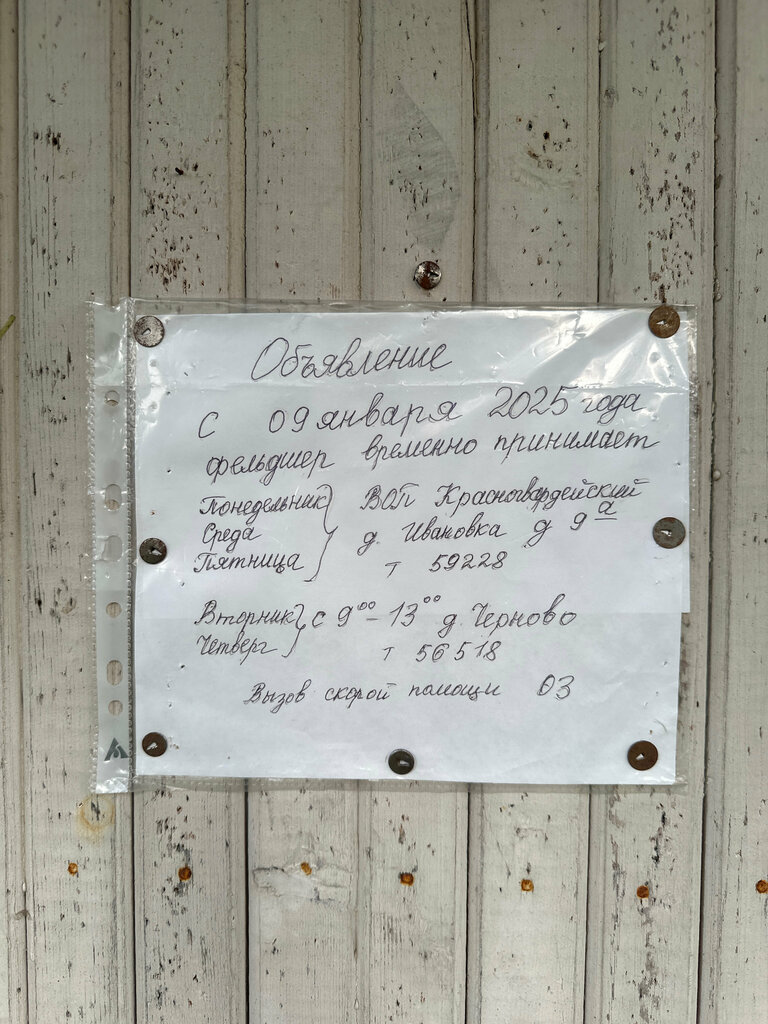 Объявление
С 09 января 2025 года
фельдшер временно принимает
Понедельник } ВОП Красногвардейский
Среда } д. Ивановка д 9а
Пятница } т 59228
Вторник } с 9⁰⁰ - 13⁰⁰ д. Черново
Четверг } т 56518
Вызов скорой помощи 03